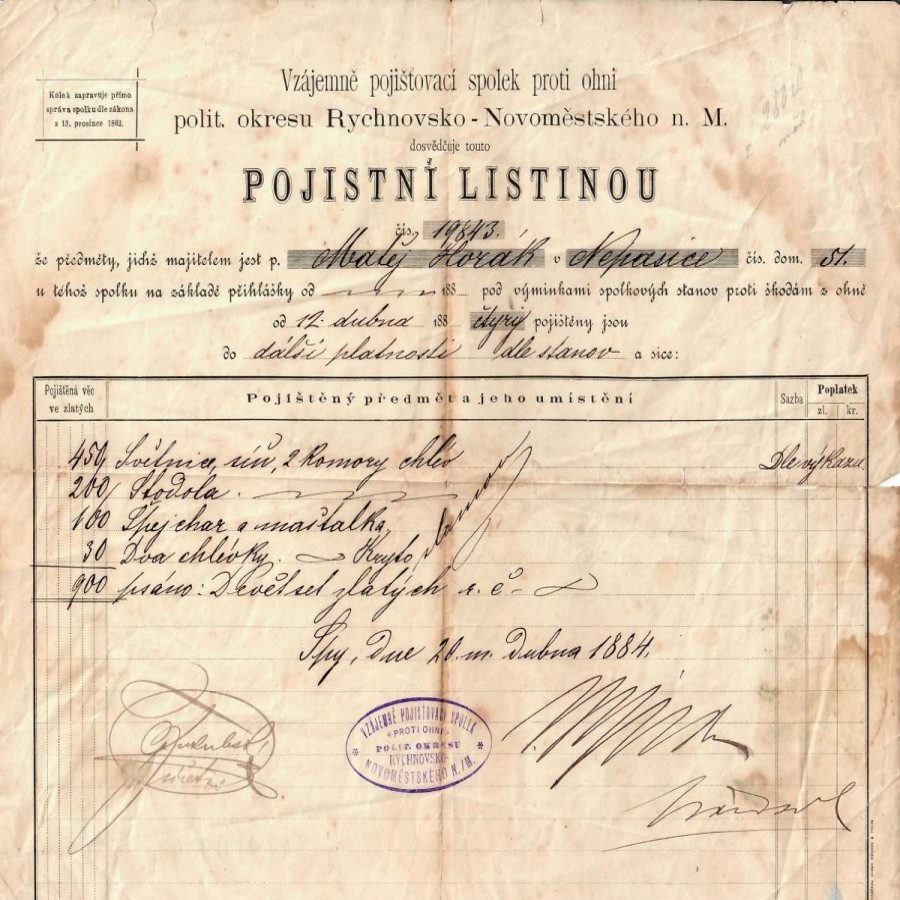 Kolek zapravuje přímo
správa spolku dle zákona
z 13. prosince 1862.
Vzájemně pojišťovací spolek proti ohni
polit. okresu Rychnovsko - Novoměstského n. M.
dosvědčuje touto
POJISTNÍ LISTINOU
čís. 19843.
že předměty, jichž majitelem jest p. Matěj Horák v Nepasice čís. dom. 51.
u téhož spolku na základě přihlášky od 188 pod výminkami spolkových stanov proti škodám z ohně
od 12. dubna 188 čtyry pojištěny jsou
do další platnosti dle stanov a sice:
Pojištěná věc
ve zlatých
Pojištěný předmět a jeho umístění
Sazba
Poplatek
zl. kr.
450 Světnice, síň, 2 komory chlév Dle výkazu
200 Stodola
100 Špejchar a maštalka
30 Dva chlívky. Kryto slamou
900 psáno: Devětset zlatých r. č.
Spy, dne 20. m. Dubna 1884.
VZÁJEMNĚ POJIŠŤOVACÍ SPOLEK
PROTI OHNI
POLIT. OKRESU
RYCHNOVSKO-
NOVOMĚSTSKÉHO N./M.